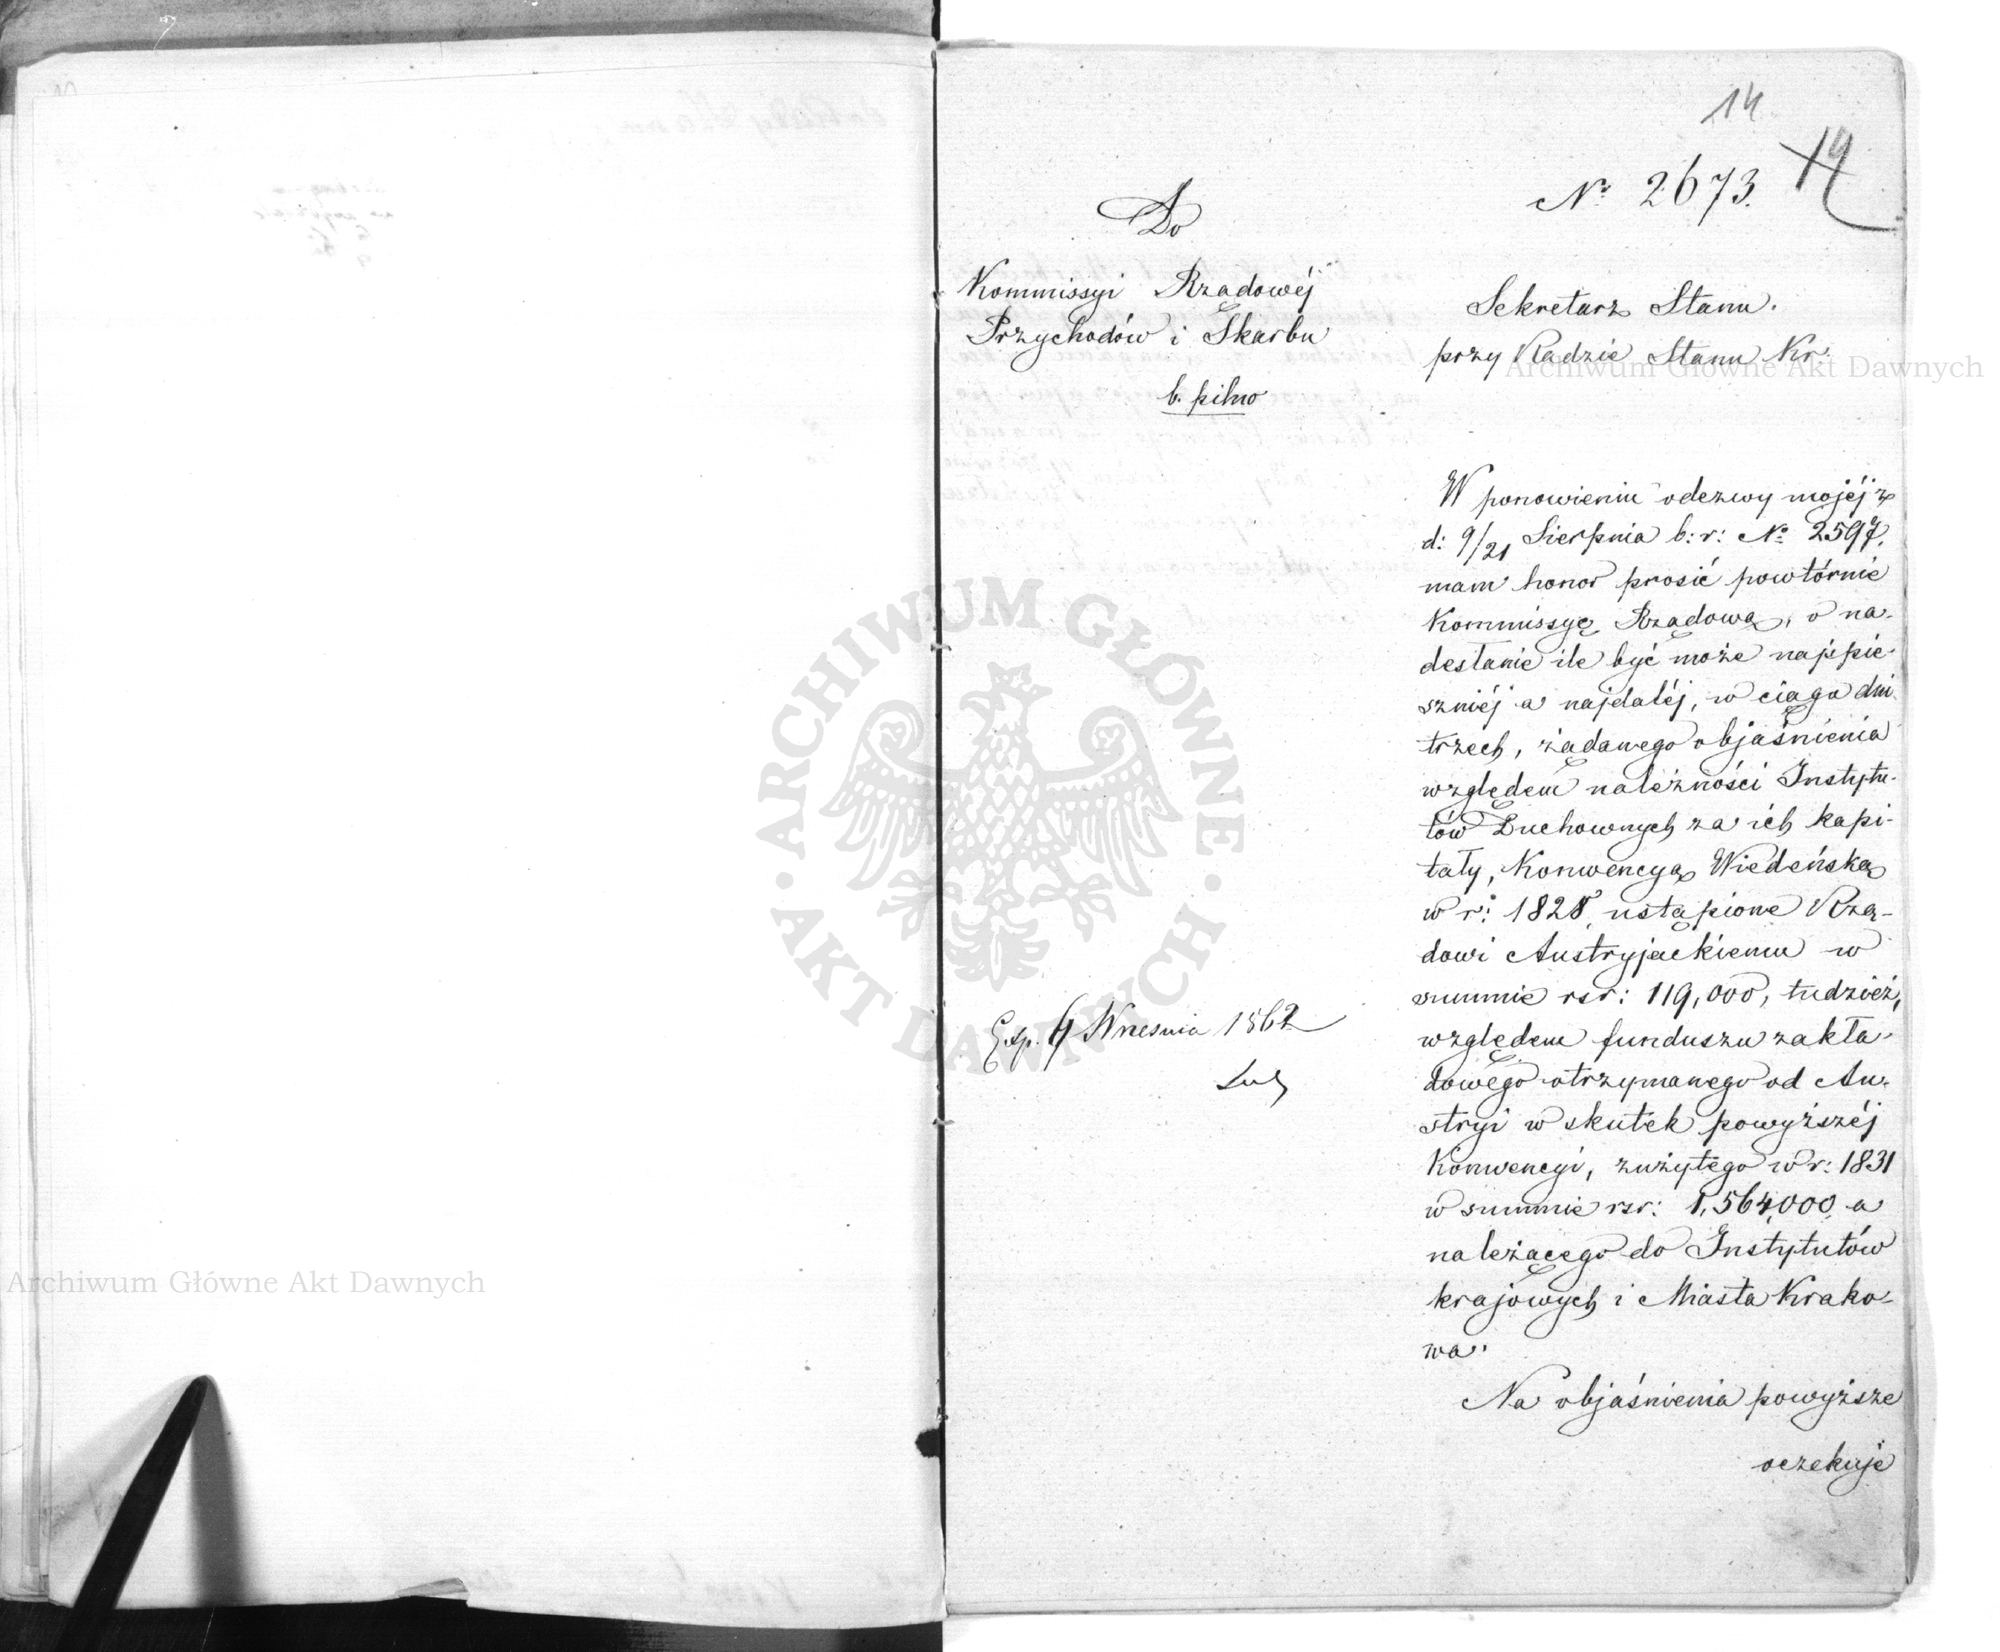 14
14
No 2673.
Do
Kommissyi Rządowéj
Przychodów i Skarbu
b. pilno
Sekretarz Stanu
przy Radzie Stanu Kr:
W ponowieniu odezwy mojéj z
d: 9/21 Sierpnia b: r: No 2597,
mam honor prosić powtórnie
Kommissyę Rządową, o na-
desłanie ile być może najspie-
szniéj a najdaléj, w ciągu dni
trzech, żądanego objaśnienia
względem należności Instytu-
tów Duchownych za ich kapi-
tały, Konwencyą Wiedeńską
w r: 1828 ustąpione Rzą-
dowi Austryjackiemu w
summie rsr: 119,000, tudzież,
względem funduszu zakła-
dowego otrzymanego od Au-
stryi w skutek powyższéj
Konwencyi, zużytego w r: 1831
w summie rsr: 1,564,000 a
należącego do Instytutów
krajowych i Miasta Krako-
wa.
Na objaśnienia powyższe
oczekuje
Exp. 4 Wrzesnia 1862
Archiwum Główne Akt Dawnych
Archiwum Główne Akt Dawnych
ARCHIWUM GŁÓWNE
AKT DAWNYCH